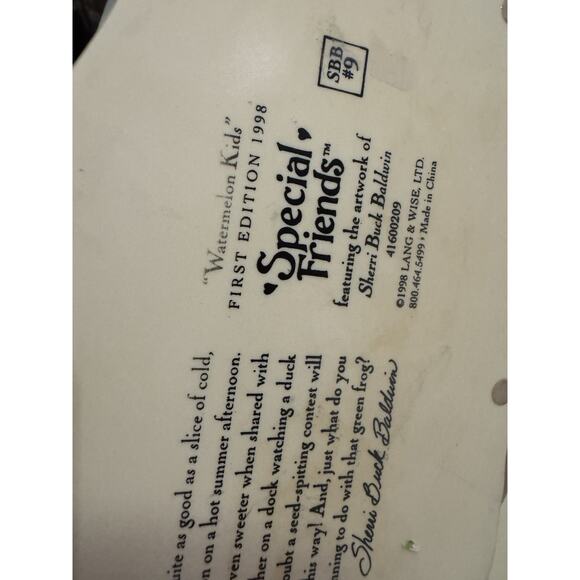 "Watermelon Kids"
FIRST EDITION 1998
Special
Friends™
featuring the artwork of
Sherri Buck Baldwin
41600209
©1998 LANG & WISE, LTD.
800.464.5499 • Made in China
SBB
#9
as good as a slice of cold,
on a hot summer afternoon.
sweeter when shared with
on a dock watching a duck
a seed-spitting contest will
way! And, just what do you
to do with that green frog?
Sherri Buck Baldwin